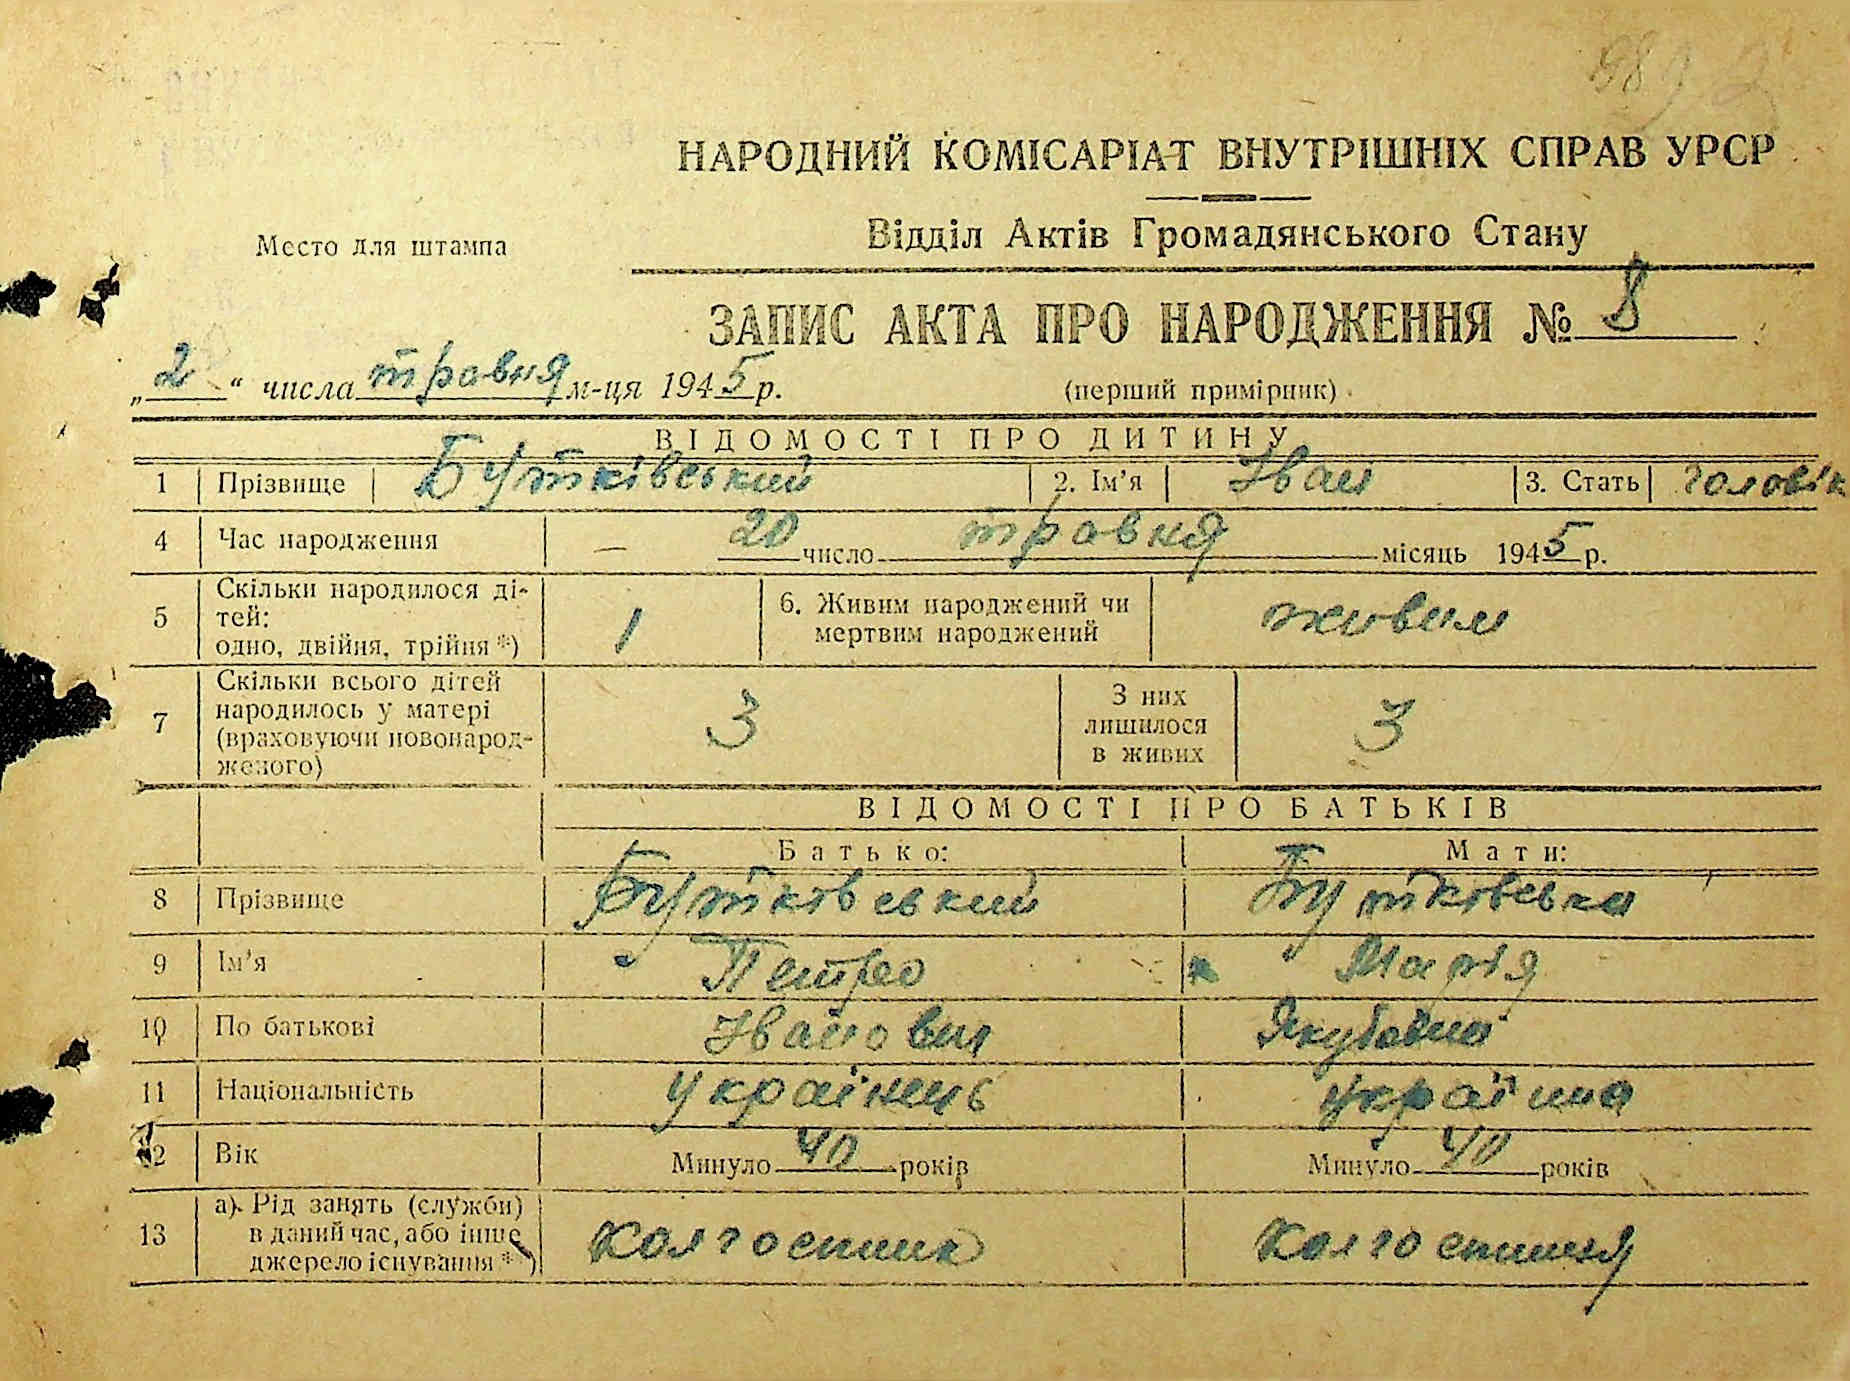 НАРОДНИЙ КОМІСАРІАТ ВНУТРІШНІХ СПРАВ УРСР
Відділ Актів Громадянського Стану
Место для штампа
ЗАПИС АКТА ПРО НАРОДЖЕННЯ № 8
„2“ числа травня м-ця 1945 р.
(перший примірник)
ВІДОМОСТІ ПРО ДИТИНУ
1 Прізвище Бутківський 2. Ім'я Іван 3. Стать чоловік
4 Час народження — 20 число травня місяць 1945 р.
5 Скільки народилося ді-
тей:
одно, двійня, трійня *) 1 6. Живим народжений чи
мертвим народжений живим
7 Скільки всього дітей
народилось у матері
(враховуючи новонарод-
женого) 3 З них
лишилося
в живих 3
ВІДОМОСТІ ПРО БАТЬКІВ
Батько: Мати:
8 Прізвище Бутковський Бутковська
9 Ім'я Петро Марія
10 По батькові Іванович Якубовна
11 Національність українець українка
12 Вік Минуло 40 років Минуло 40 років
13 а). Рід занять (служби)
в даний час, або інше
джерело існування *) Колгоспник Колгоспниця